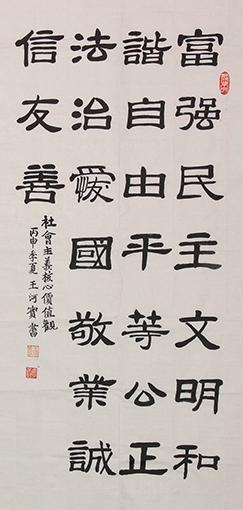 富强民主文明和
諧自由平等公正
法治愛國敬業誠
信友善
社會主義核心價值觀
丙申季夏王河寶書